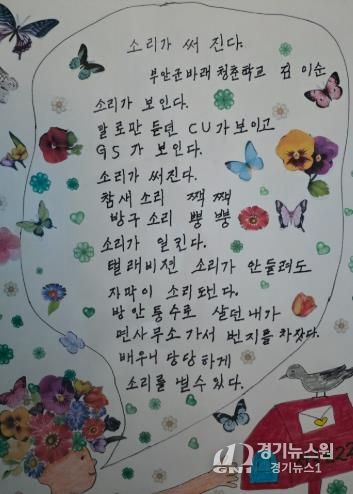 소리가 써 진다.
부안군바래 청춘학교 김 이순
소리가 보인다.
말로만 듣던 CU가 보이고
GS 가 보인다.
소리가 써진다.
참새 소리 짹 짹
방구 소리 뿡 뿡
소리가 일킨다.
텔래비젼 소리가 안들려도
자막이 소리된다.
방안 통수로 살던 내가
면사무소 가서 번지를 차잤다.
배우니 당당하게
소리를 낼수 있다.
경기뉴스원
경기뉴스1